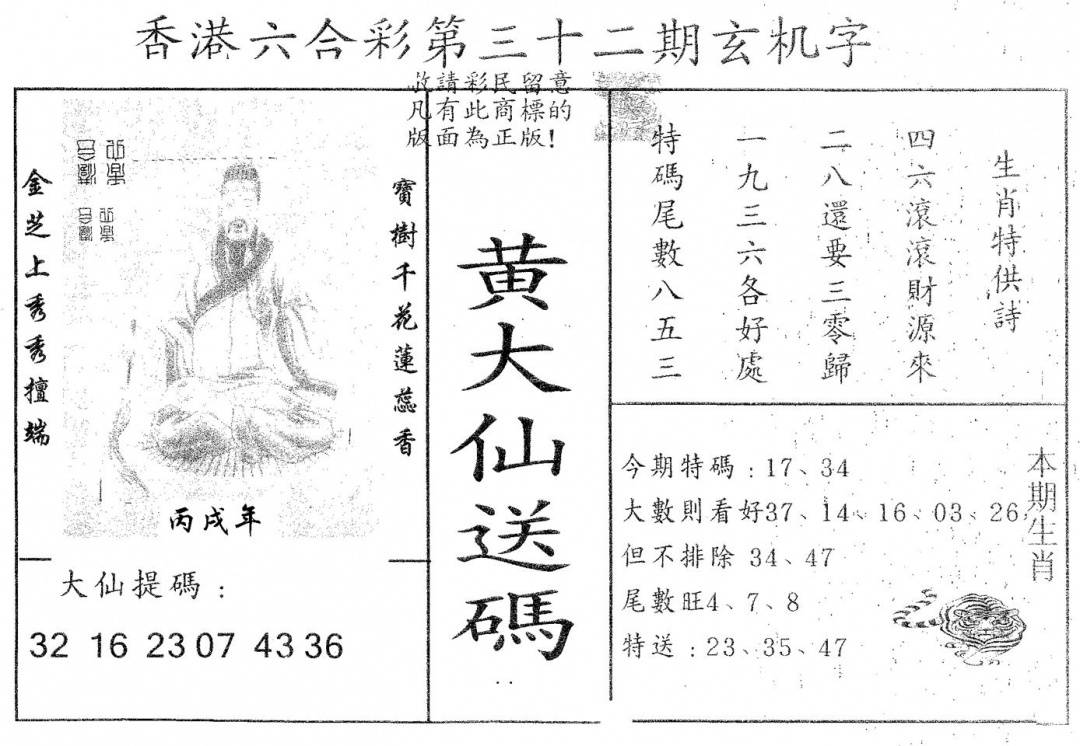 香港六合彩第三十二期玄机字
敬請彩民留意
凡有此商標的
版面為正版!
金芝上秀秀擅端
寶樹千花蓮蕊香
丙戌年
大仙提碼：
32 16 23 07 43 36
黄大仙送碼
生肖特供詩
四六滾滾財源來
二八還要三零歸
一九三六各好處
特碼尾數八五三
本期生肖
今期特碼：17、34
大數則看好37、14、16、03、26,
但不排除 34、47
尾數旺4、7、8
特送：23、35、47